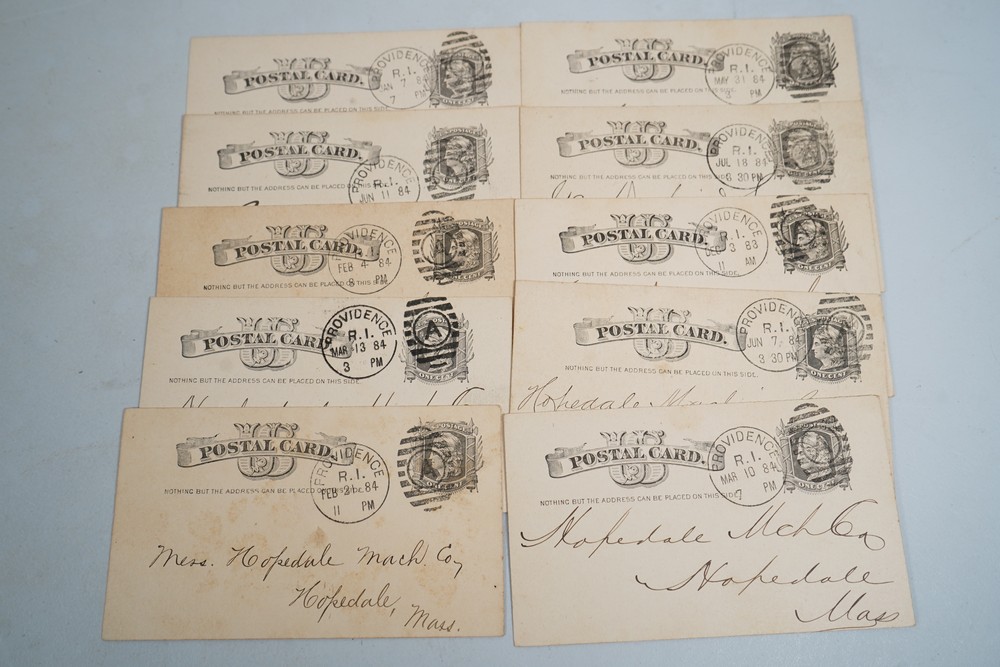 POSTAL CARD.
NOTHING BUT THE ADDRESS CAN BE PLACED ON THIS SIDE.
PROVIDENCE
R.I.
JAN 7 84
7 PM
ONE CENT
POSTAL CARD.
NOTHING BUT THE ADDRESS CAN BE PLACED ON THIS SIDE.
PROVIDENCE
R.I.
JUN 11 84
POSTAL CARD.
NOTHING BUT THE ADDRESS CAN BE PLACED ON THIS SIDE.
PROVIDENCE
FEB 4 84
8 PM
ONE CENT
POSTAL CARD.
NOTHING BUT THE ADDRESS CAN BE PLACED ON THIS SIDE.
PROVIDENCE
R.I.
MAR 13 84
3 PM
A
ONE CENT
POSTAL CARD.
NOTHING BUT THE ADDRESS CAN BE PLACED ON THIS SIDE.
PROVIDENCE
R.I.
FEB 21 84
11 PM
A
ONE CENT
Mess. Hopedale Mach. Co,
Hopedale,
Mass.
POSTAL CARD.
NOTHING BUT THE ADDRESS CAN BE PLACED ON THIS SIDE.
PROVIDENCE
R.I.
MAY 31 84
PM
A
ONE CENT
POSTAL CARD.
NOTHING BUT THE ADDRESS CAN BE PLACED ON THIS SIDE.
PROVIDENCE
R.I.
JUL 18 84
3 30 PM
POSTAL CARD.
NOTHING BUT THE ADDRESS CAN BE PLACED ON THIS SIDE.
PROVIDENCE
R.I.
DEC 3 83
11 AM
ONE CENT
POSTAL CARD.
NOTHING BUT THE ADDRESS CAN BE PLACED ON THIS SIDE.
PROVIDENCE
R.I.
JUN 7 84
3 30 PM
ONE CENT
Hopedale
POSTAL CARD.
NOTHING BUT THE ADDRESS CAN BE PLACED ON THIS SIDE.
PROVIDENCE
R.I.
MAR 10 84
7 PM
ONE CENT
Hopedale Mch Co
Hopedale
Mass